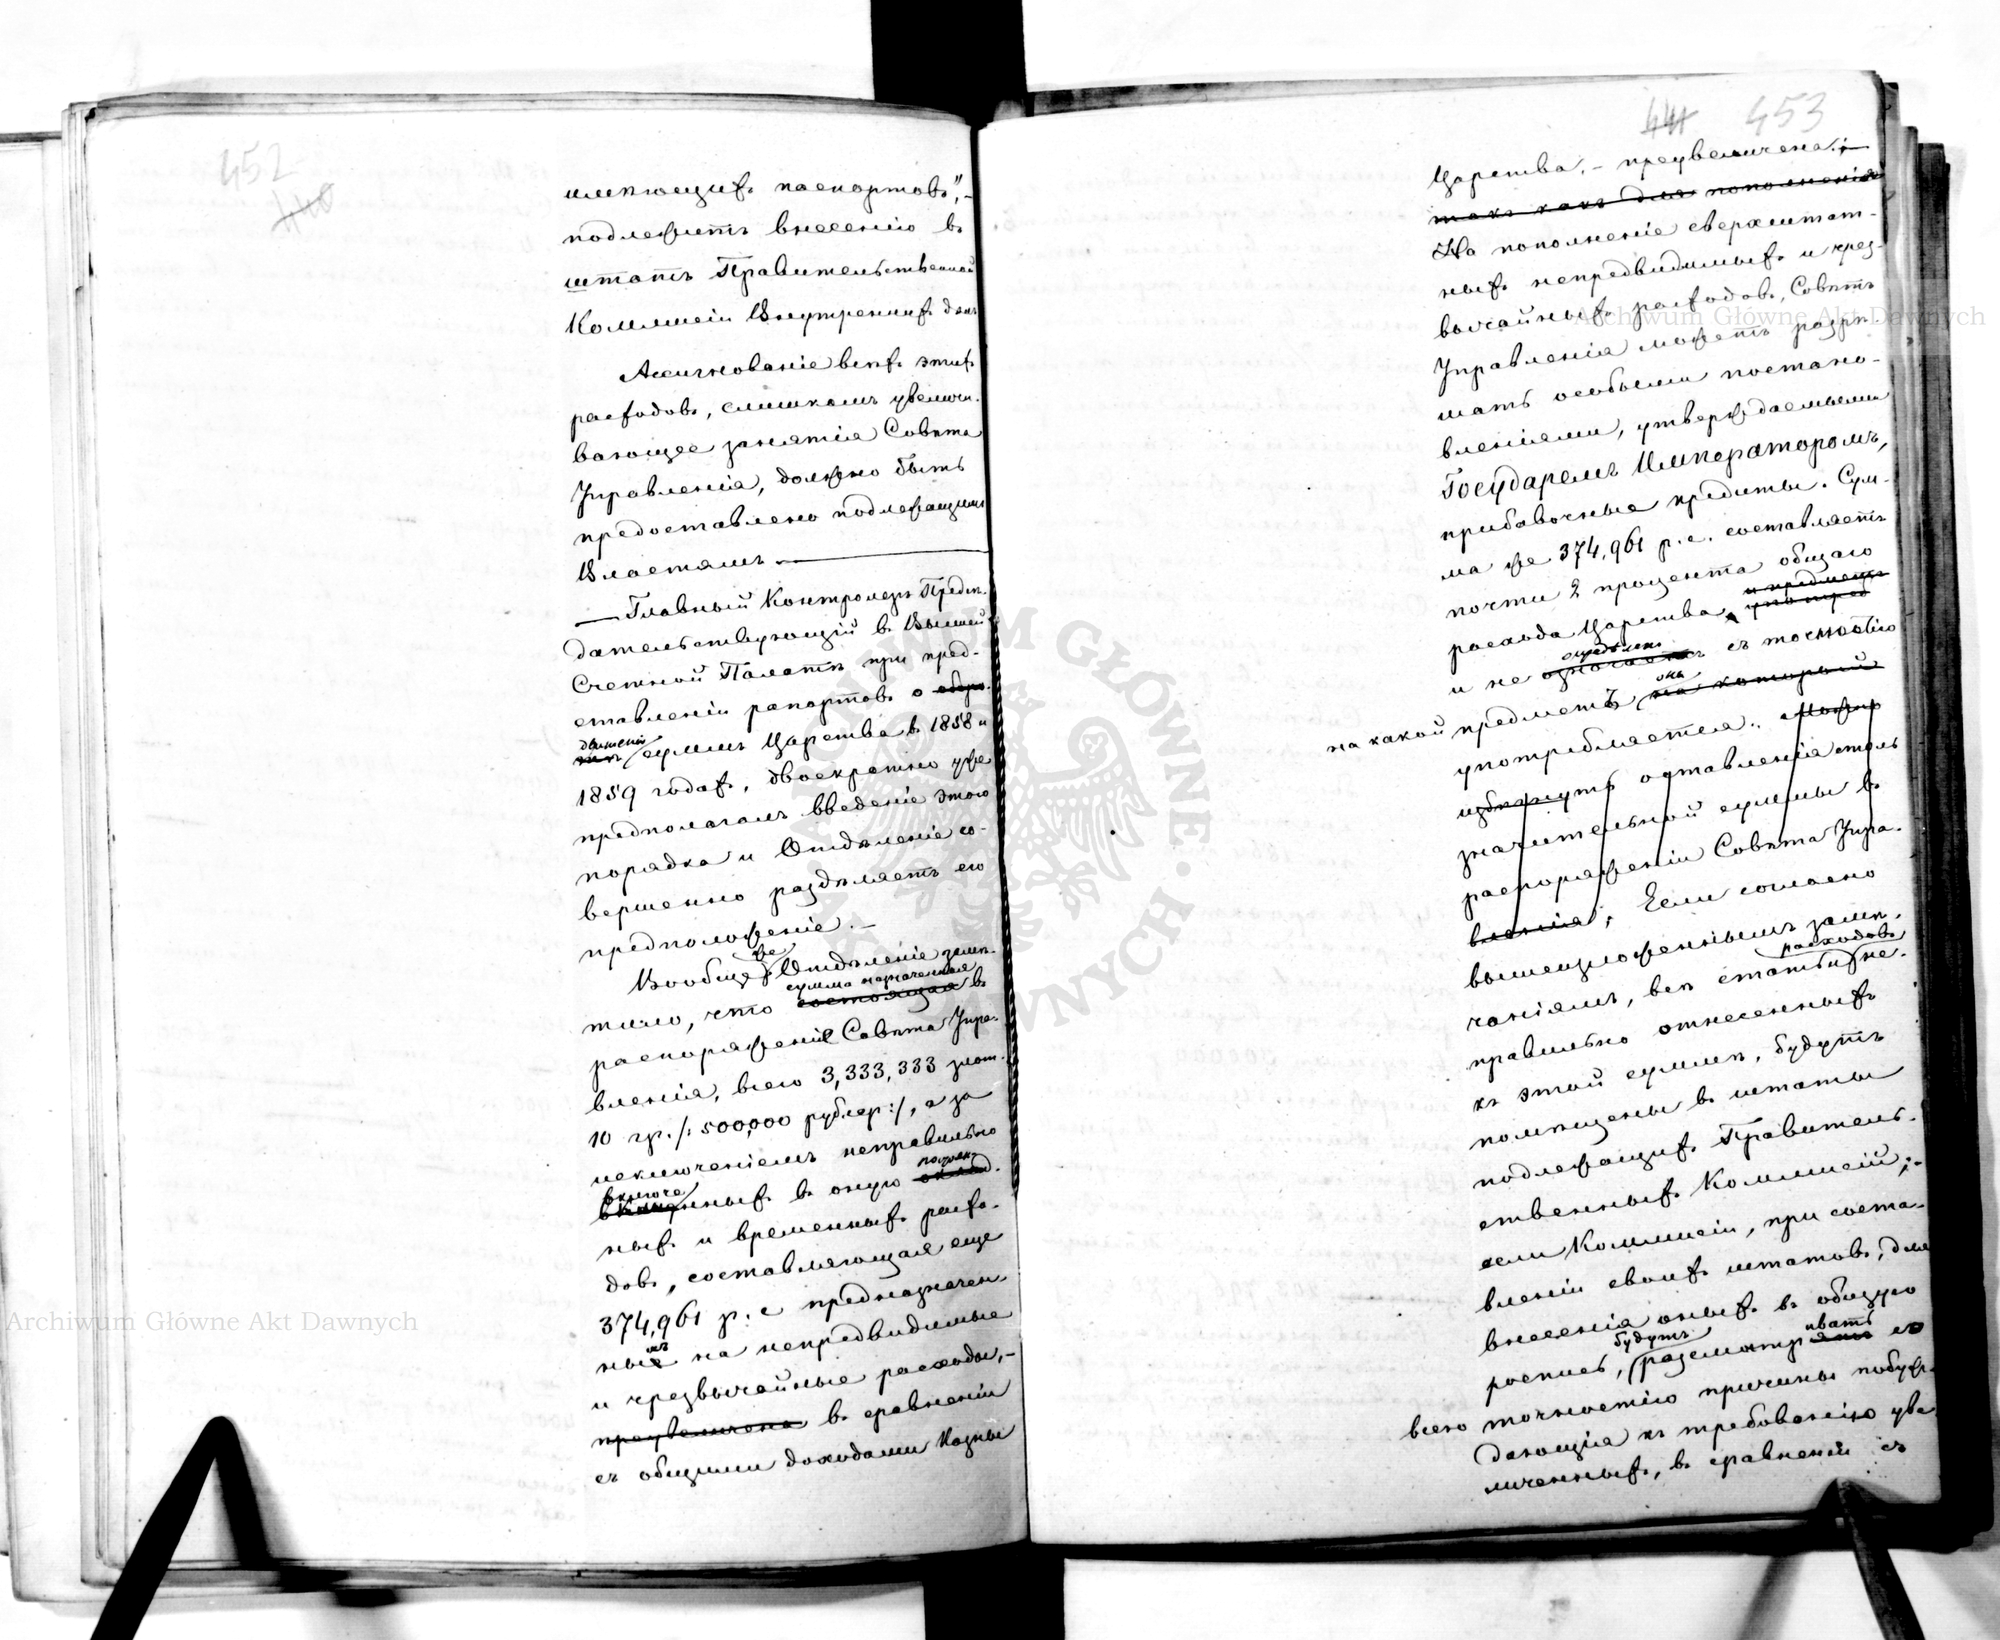 452
440
имѣющихъ паспортовъ",–
подлежитъ внесенію въ
штатъ Правительственной
Коммисіи Внутреннихъ дѣлъ
Ассигнованіе всѣхъ этихъ
расходовъ, слишкомъ увеличи-
вающее занятія Совѣта
Управленія, должно быть
предоставлено подлежащимъ
Властямъ.
— Главный Контролеръ Предсѣ-
дательствующій въ Высшей
Счетной Палатѣ при пред-
ставленіи рапортовъ о
движеніи суммъ Царства въ 1858 и
1859 годахъ, двоекратно уже
предполагалъ введеніе этого
порядка и Отдѣленіе со-
вершенно раздѣляетъ его
предположеніе.–
же
Вообще Отдѣленіе замѣ-
сумма назначенная
тило, что состоящая въ
распоряженіе Совѣта Упра-
вленія, всего 3,333,333 злот.
10 гр. /: 500,000 рублер:/, а за
исключеніемъ неправильно
включенныхъ въ оную постоян-
ныхъ и временныхъ расхо-
довъ, составляющая еще
374,961 р. с предназначен
ныхъ на непредвидимые
и чрезвычайные расходы,–
преувеличена въ сравненіи
съ общими доходами Казны
441 453
Царства,– преувеличена;
такъ какъ для пополненія
На пополненіе сверхштат-
ныхъ непредвидимыхъ и чрез-
вычайныхъ расходовъ, Совѣтъ
Управленія можетъ разрѣ-
шать особыми постано-
вленіями, утверждаемыми
Государемъ Императоромъ,
прибавочные кредиты. Сум-
ма же 374,961 р. с. составляетъ
почти 2 процента общаго
и предметъ
расхода Царства
опредѣлено
и не означаетъ съ точностію
она
на какой предметъ на который
употребляется.
избѣгнуть оставленія столь
значительной суммы въ
распоряженіи Совѣта Упра-
вленія; Если согласно
вышеизложеннымъ замѣ-
расходовъ
чаніямъ, всѣ статьи не-
правильно отнесенныхъ
къ этой суммѣ, будутъ
помѣщены въ штаты
подлежащихъ Правитель-
ственныхъ Коммисій;–
если Коммисіи, при соста-
вленіи своихъ штатовъ, для
внесенія оныхъ въ общую
будутъ ивать
роспись, разсматр со
всею точностію причины побуж-
дающія къ требованію уве-
личенныхъ, въ сравненіи съ
Archiwum Główne Akt Dawnych
Archiwum Główne Akt Dawnych
ARCHIWUM GŁÓWNE AKT DAWNYCH